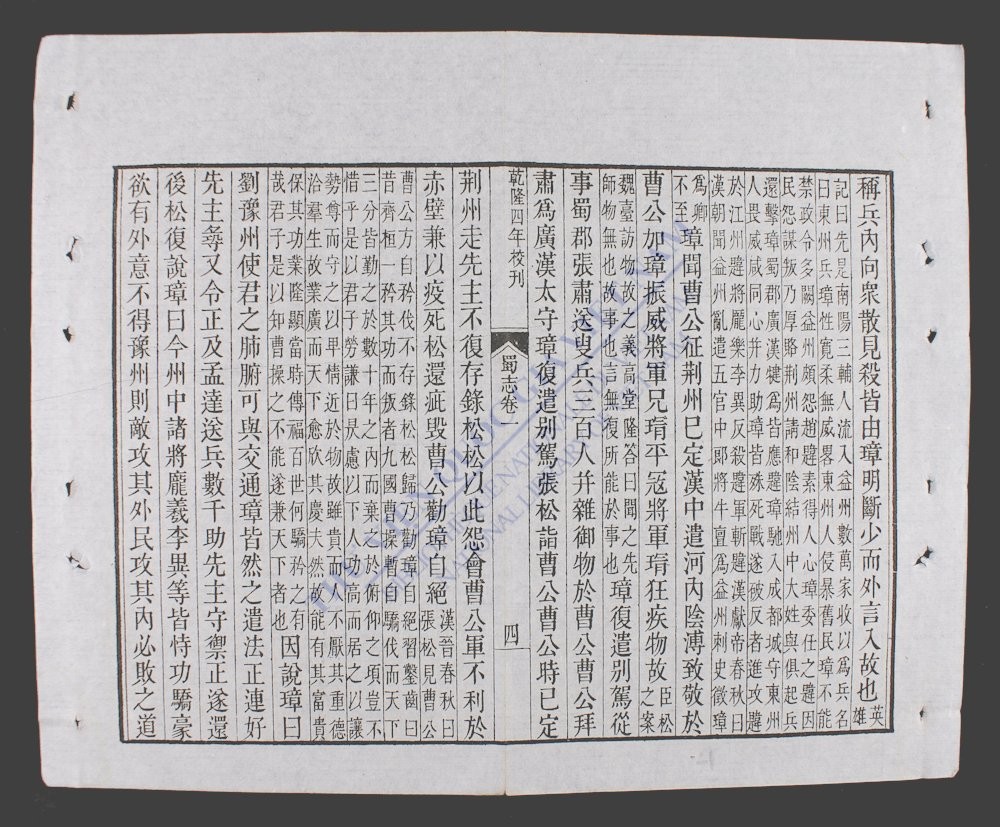 稱兵內向衆散見殺皆由璋明斷少而外言入故也英
雄
記曰先是南陽三輔人流入益州數萬家收以爲兵名
曰東州兵璋性寬柔無威畧東州人侵暴舊民璋不能
禁政令多闕益州頗怨趙韙素得人心璋委任之韙因
民怨謀叛乃厚賂荆州請和陰結州中大姓與俱起兵
還擊璋蜀郡廣漢犍爲皆應韙璋馳入成都城守東州
人畏威咸同心并力助璋皆殊死戰遂破反者進攻韙
於江州韙將龐樂李異反殺韙軍斬韙漢獻帝春秋曰
漢朝聞益州亂遣五官中郎將牛亶爲益州刺史徵璋
爲卿
不至
璋聞曹公征荆州已定漢中遣河內陰溥致敬於
曹公加璋振威將軍兄瑁平寇將軍瑁狂疾物故
臣松
之案
魏臺訪物故之義高堂隆答曰聞之先
師物無也故事也言無復所能於事也
璋復遣别駕從
事蜀郡張肅送叟兵三百人并雜御物於曹公曹公拜
肅爲廣漢太守璋復遣别駕張松詣曹公曹公時已定
乾隆四年校刊
蜀志卷一
四
荆州走先主不復存錄松松以此怨會曹公軍不利於
赤壁兼以疫死松還疵毁曹公勸璋自絕
漢晉春秋曰
張松見曹公
曹公方自矜伐不存錄松松歸乃勸璋自絕習鑿齒曰
昔齊桓一矜其功而叛者九國曹操暫自驕伐而天下
三分皆勤之於數十年之內而棄之於俯仰之頃豈不
惜乎是以君子勞謙日昃慮以下人功高而居之以讓
勢尊而守之以卑情近於物故雖貴而人不厭其重德
洽羣生故業廣而天下愈欣其慶夫然故能有其富貴
保其功業隆顯當時傳福百世何驕矜之有
哉君子是以知曹操之不能遂兼天下者也
因說璋曰
劉豫州使君之肺腑可與交通璋皆然之遣法正連好
先主尋又令正及孟達送兵數千助先主守禦正遂還
後松復說璋曰今州中諸將龐羲李異等皆恃功驕豪
欲有外意不得豫州則敵攻其外民攻其內必敗之道